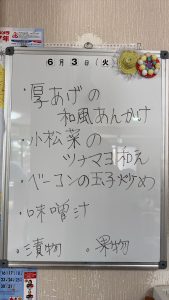 6月3日(火)
・厚あげの
和風あんかけ
・小松菜の
ツナマヨ和え
・ベーコンの玉子炒め
・味噌汁
・漬物 ・果物